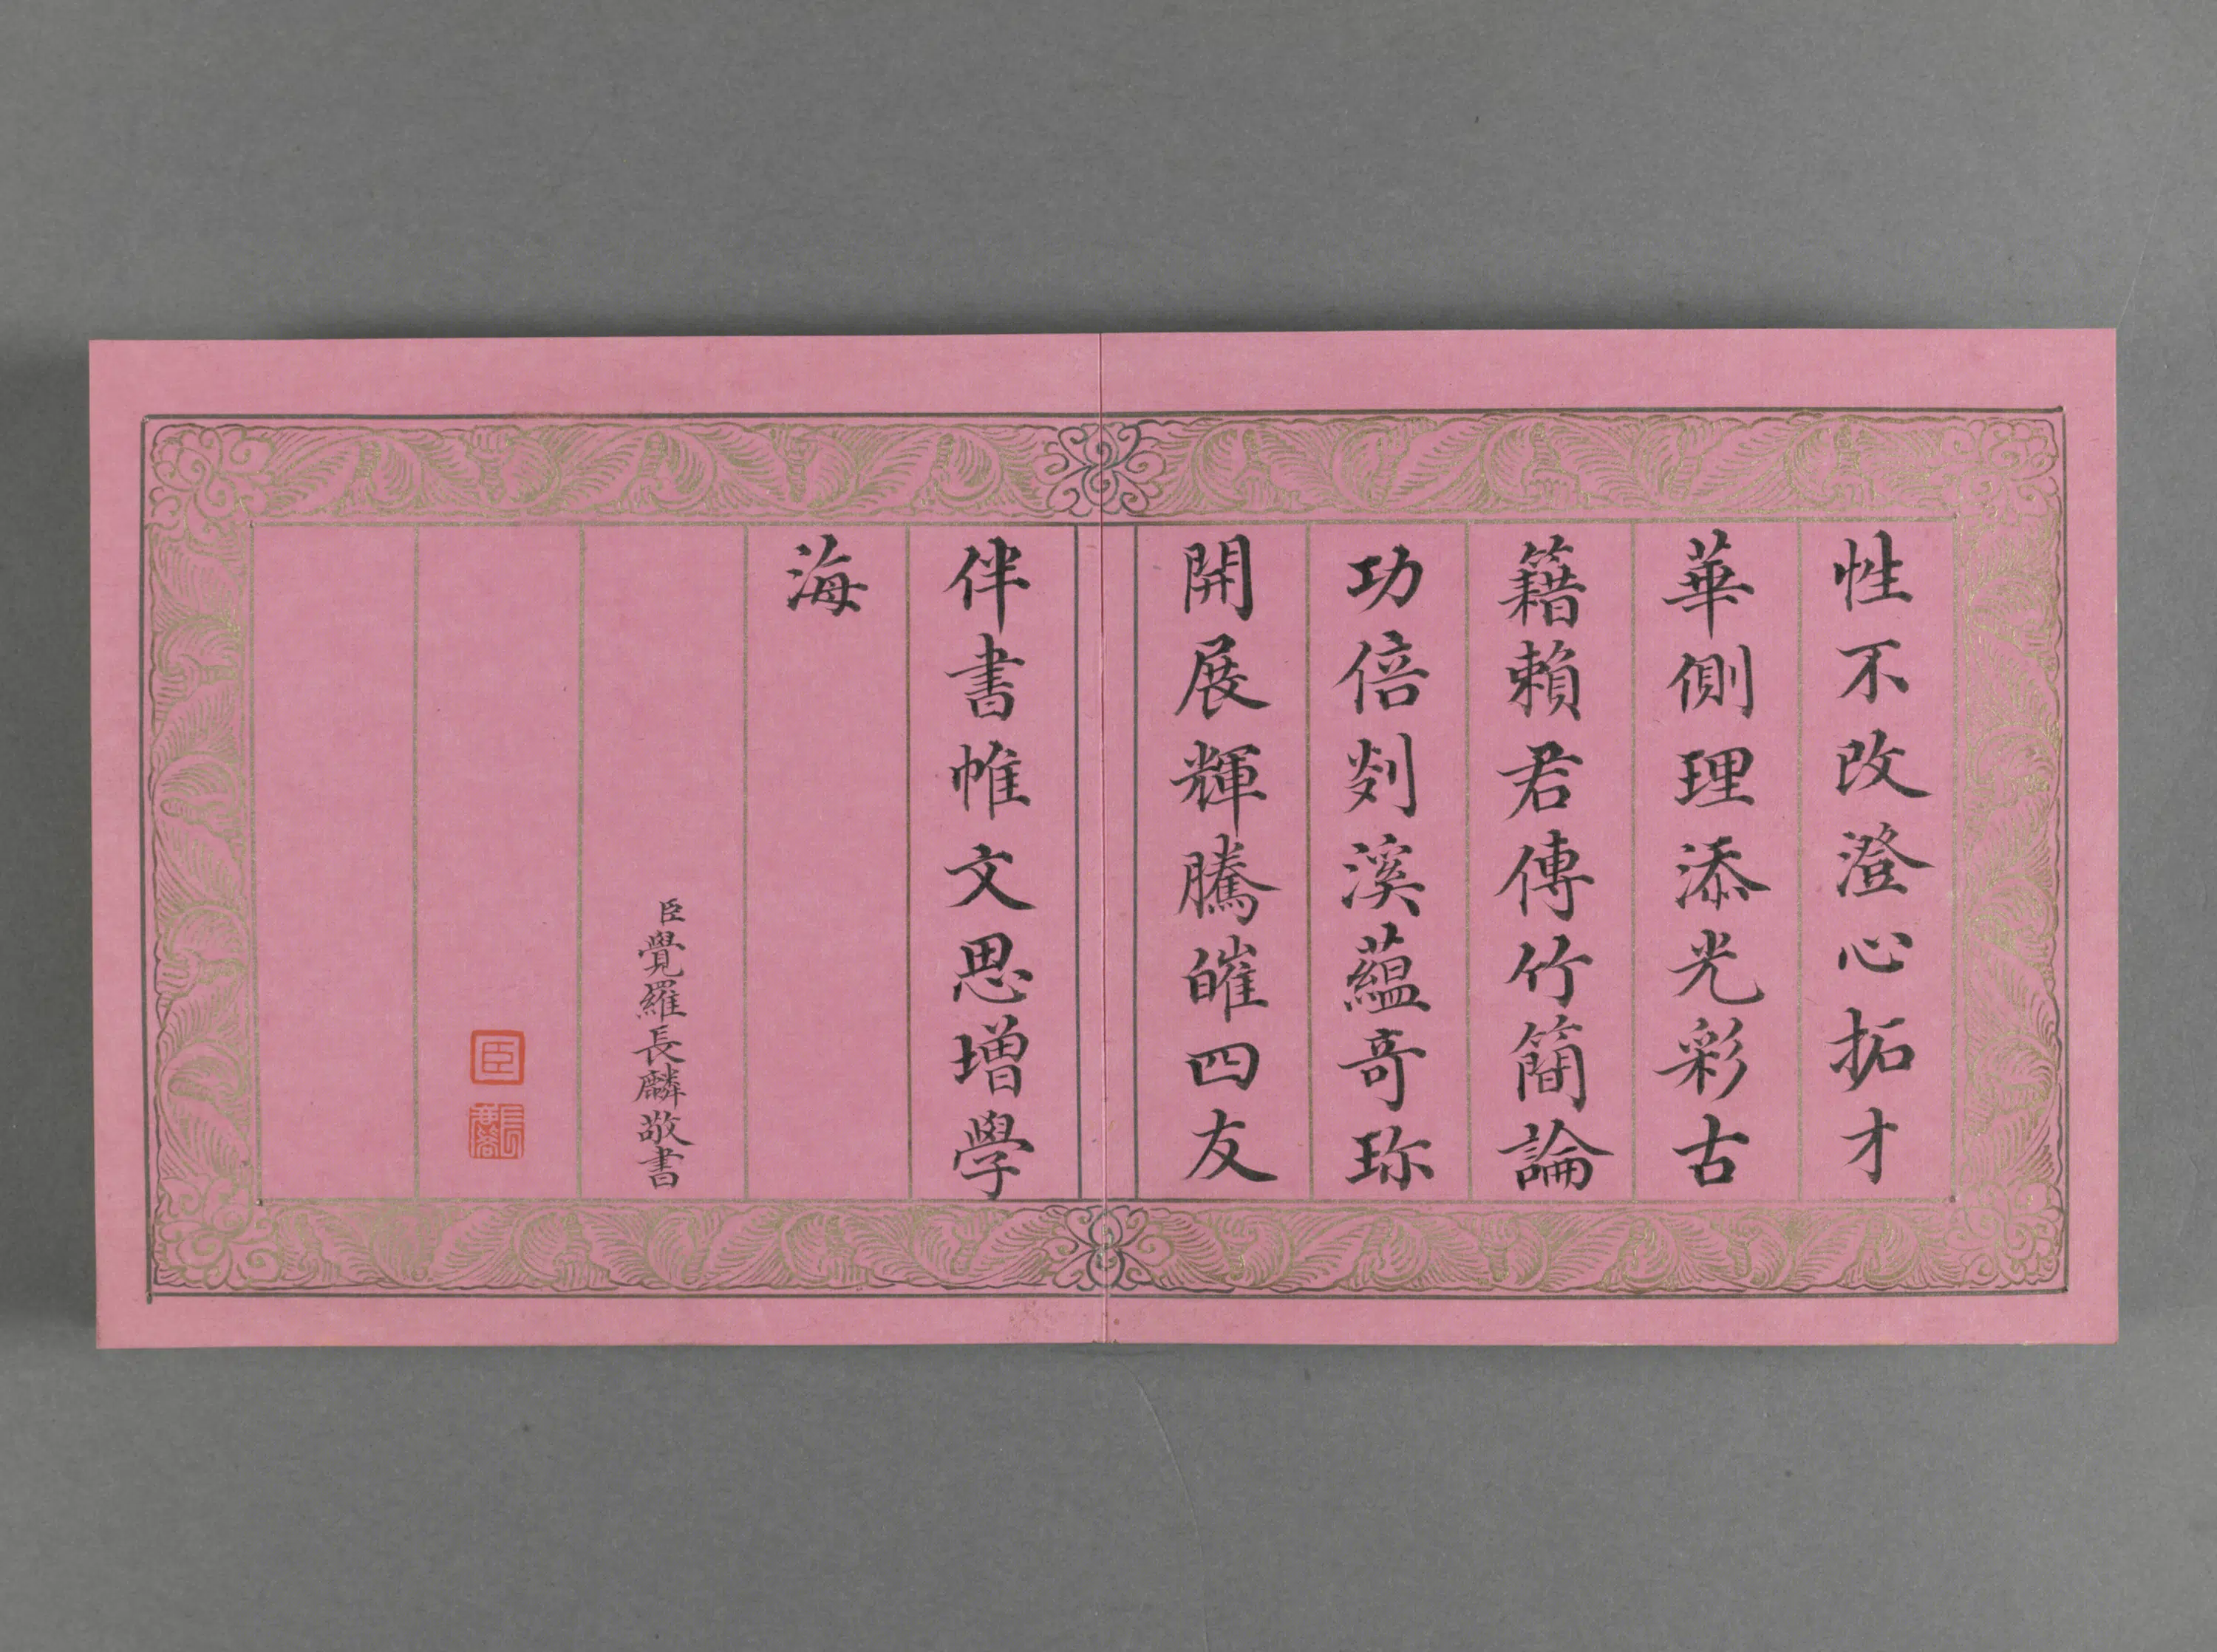 性不改澄心拓才
華側理添光彩古
籍賴君傳竹簡論
功倍剡溪蘊奇珎
開展輝騰皠四友
伴書帷文思增學
海
臣覺羅長麟敬書
臣